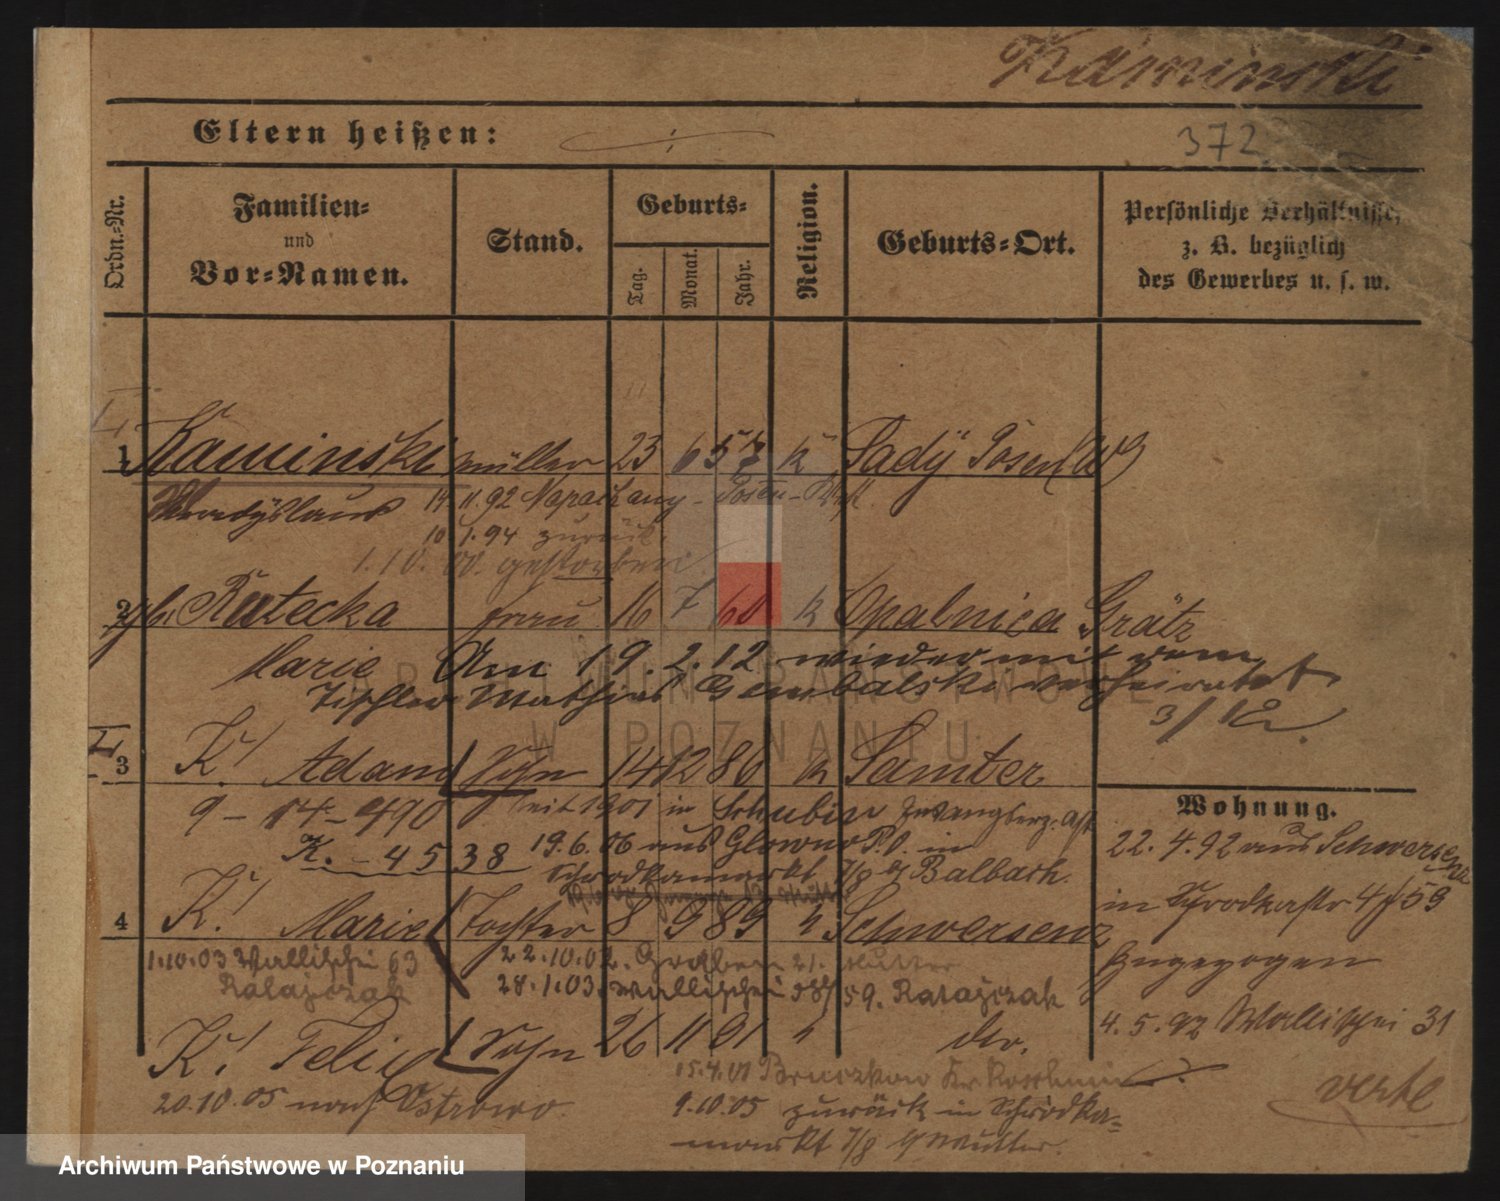 Kaminski
Eltern heißen:
372
Ordn.-Nr.
Familien-
und
Vor-Namen.
Stand.
Geburts-
Tag.
Monat.
Jahr.
Religion.
Geburts-Ort.
Persönliche Verhältnisse,
z. B. bezüglich
des Gewerbes u. s. w.
1 Kaminski Müller 23 6 57 k Sady Posen W
Wladyslaus 14 11.92 Napachany - Posen -
10 1.94 zurück.
1.10.00. gestorben.
2 gb. Rutecka Frau 16 7 60 k Opalnica Grätz
Marie Am 19.2.12 wieder mit dem
Tischler Mathias Gembalski verheiratet
3/12
3 K! Adam Sohn 14 12 86 k Samter
9 - 14 - 490 seit 1901 in Schubin Zwangserz. Ast
K. - 4538 19.6.06 aus Glowno P.O. in
Schrodkamarkt 7/8 b/ Balbach.
4 K! Marie Tochter 8 9 89 k Schwersenz
1.10.03 Wallischei 63 22.10.02. Gerberd 21. Mutter
Ratajczak 28.1.03. Wallischei 58/59. Ratajczak
K! Felix Sohn 26 11 91 k do.
15.4.01 Bruczkow Kr. Koschmin
20.10.05 nach Ostrowo. 9.10.05 zurück in Schrodka-
markt 7/8 b/ Mutter.
Wohnung.
22.4.92 aus Schwersenz
in Schrodkastr 4/59
Zugezogen
4.5.92 Wallischei 31
verte
ARCHIWUM PAŃSTWOWE
W POZNANIU
Archiwum Państwowe w Poznaniu